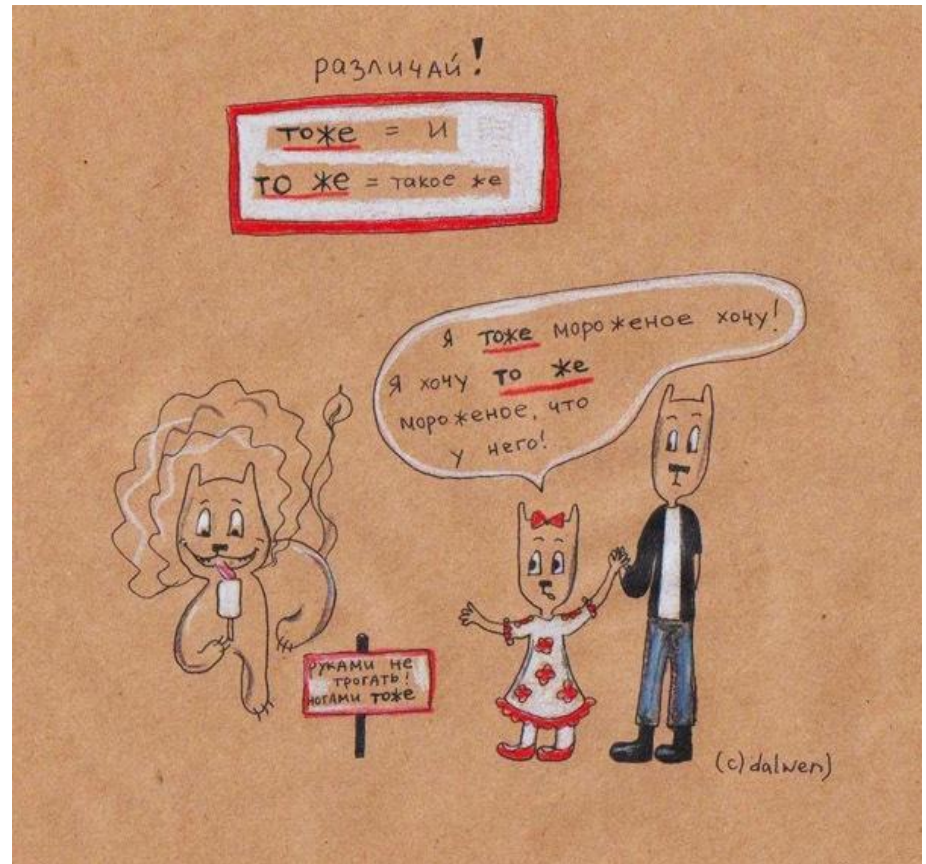 различай!
тоже = и
то же = такое же
Я тоже мороженое хочу!
Я хочу то же
мороженое, что
у него!
РУКАМИ НЕ
ТРОГАТЬ!
НОГАМИ ТОЖЕ
(c) dalwen)